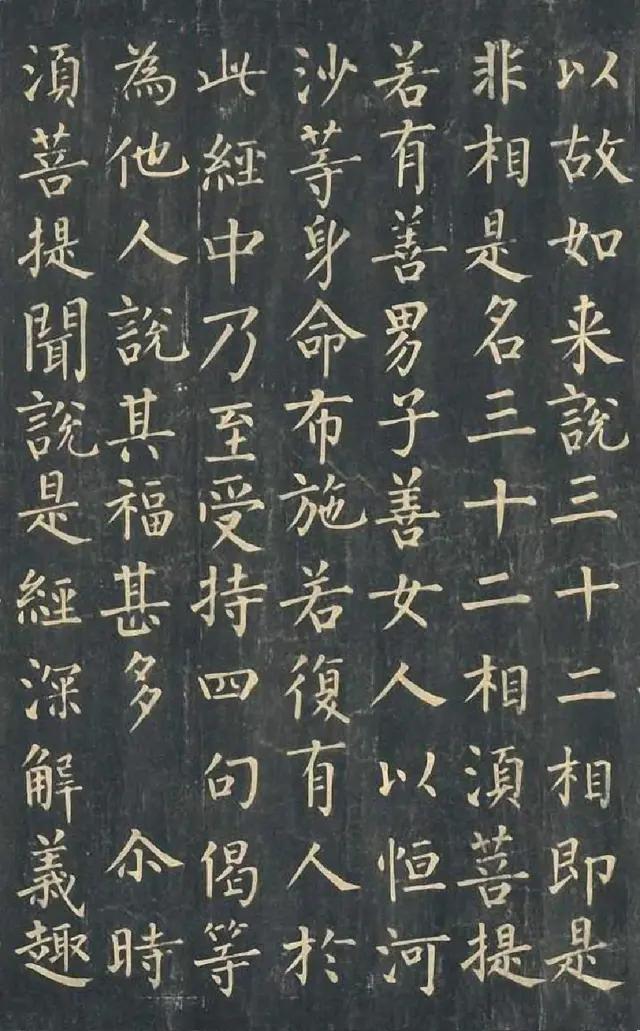 以故如来說三十二相即是
非相是名三十二相湏菩提
若有善男子善女人以恒河
沙等身命布施若復有人於
此經中乃至受持四句偈等
為他人說其福甚多　尒時
湏菩提聞說是經深解義趣